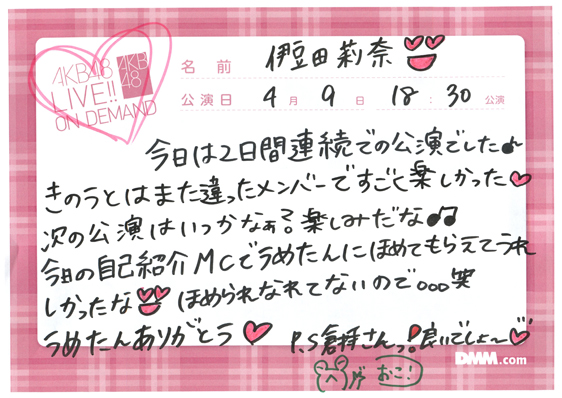 AKB48
LIVE!!
ON DEMAND
AKB
48
名前 伊豆田莉奈
公演日 4月9日 18:30公演
今日は2日間連続での公演でした♪
きのうとはまた違ったメンバーですごく楽しかった♥
次の公演はいつかなぁ?楽しみだな♪♫
今日の自己紹介MCでうめたんにほめてもらえてうれ
しかったな ほめられなれてないので。。。笑
うめたんありがとう♥ P.S倉持さんっ!良いでしょ〜♡
おこ!
DMM.com